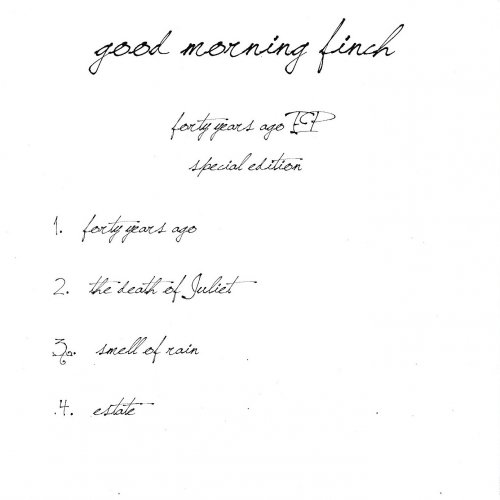 good morning finch
forty years ago EP
special edition
1. forty years ago
2. the death of Juliet
3. smell of rain
4. estate